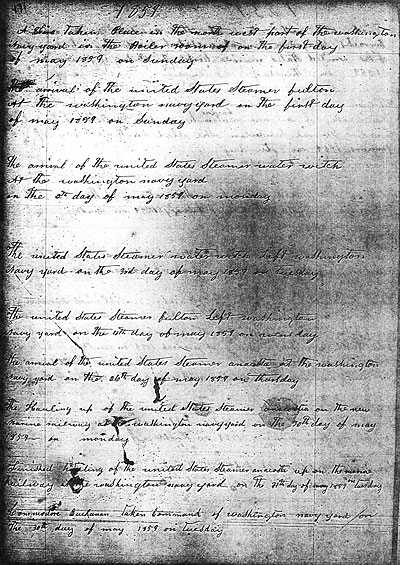 1859
A fire taken place in the north west part of the washington
navy yard in the Boiler room on the first day
of may 1859 on Sunday
The arrival of the united States Steamer fulton
At the washington navy yard on the first day
of may 1859 on Sunday
The arrival of the united States Steamer water witch
At the washington navy yard
on the day of may 1859 on monday
The united States Steamer water witch Left washington
navy yard on the 3rd day of may 1859 on tuesday
The united States Steamer fulton Left washington
navy yard on the day of may 1859 on
The arrival of the united States Steamer anacosta at the washington
navy yard on the 26th day of may 1859 on thursday
The Hauling up of the united States Steamer anacostia on the new
marine railway at the washington navy yard on the 30th day of may
1859 on monday
hauling of the united States Steamer anacosta up on the
Railway at the washington navy yard on the 31th day of may 1859 tuesday
Commodore Buchanan taken Command of washington navy yard on
the day of may 1859 on tuesday